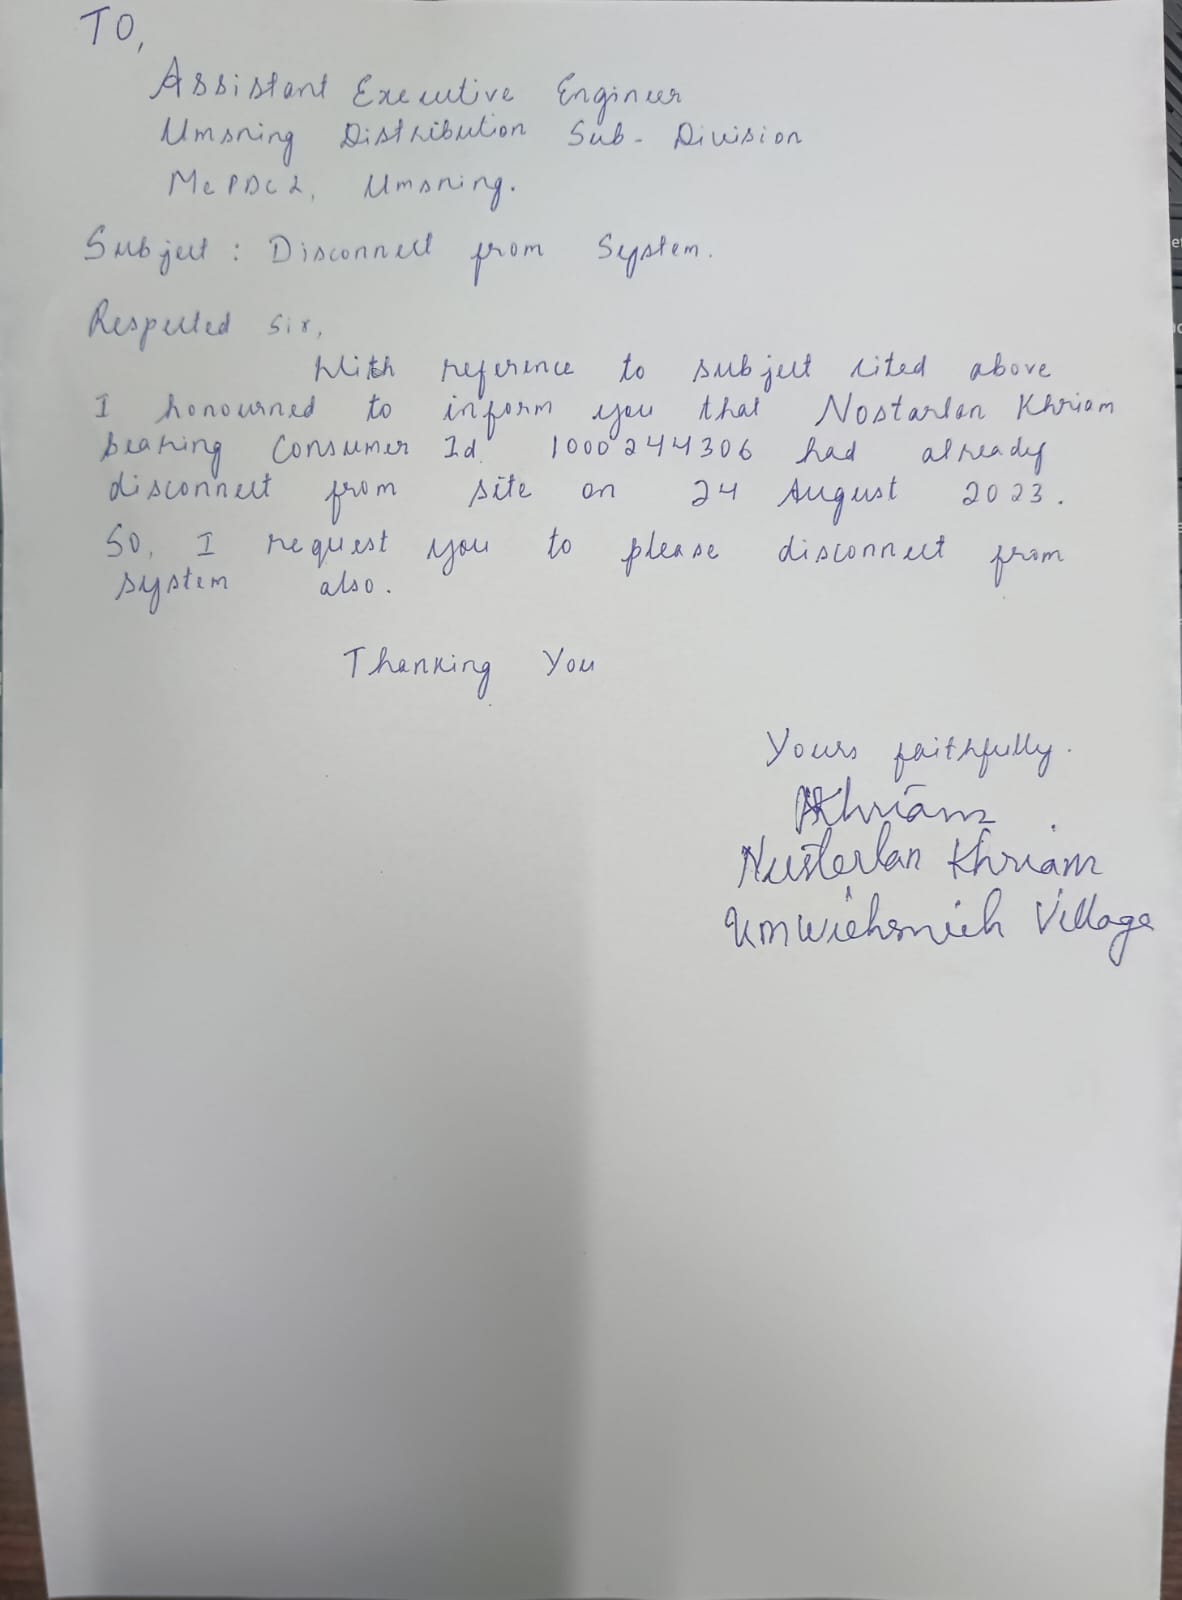 TO,
Assistant Executive Engineer
Umsning Distribution Sub-Division
MePDCL, Umsning.
Subject : Disconnect from System.
Respected Sir,
With reference to subject cited above
I honourned to inform you that Nostarlan Khriam
bearing Consumer Id 1000244306 had already
disconnect from site on 24 August 2023.
So, I request you to please disconnect from
system also.
Thanking You
Yours faithfully.
Khriam
Nusterlan Khriam
Village